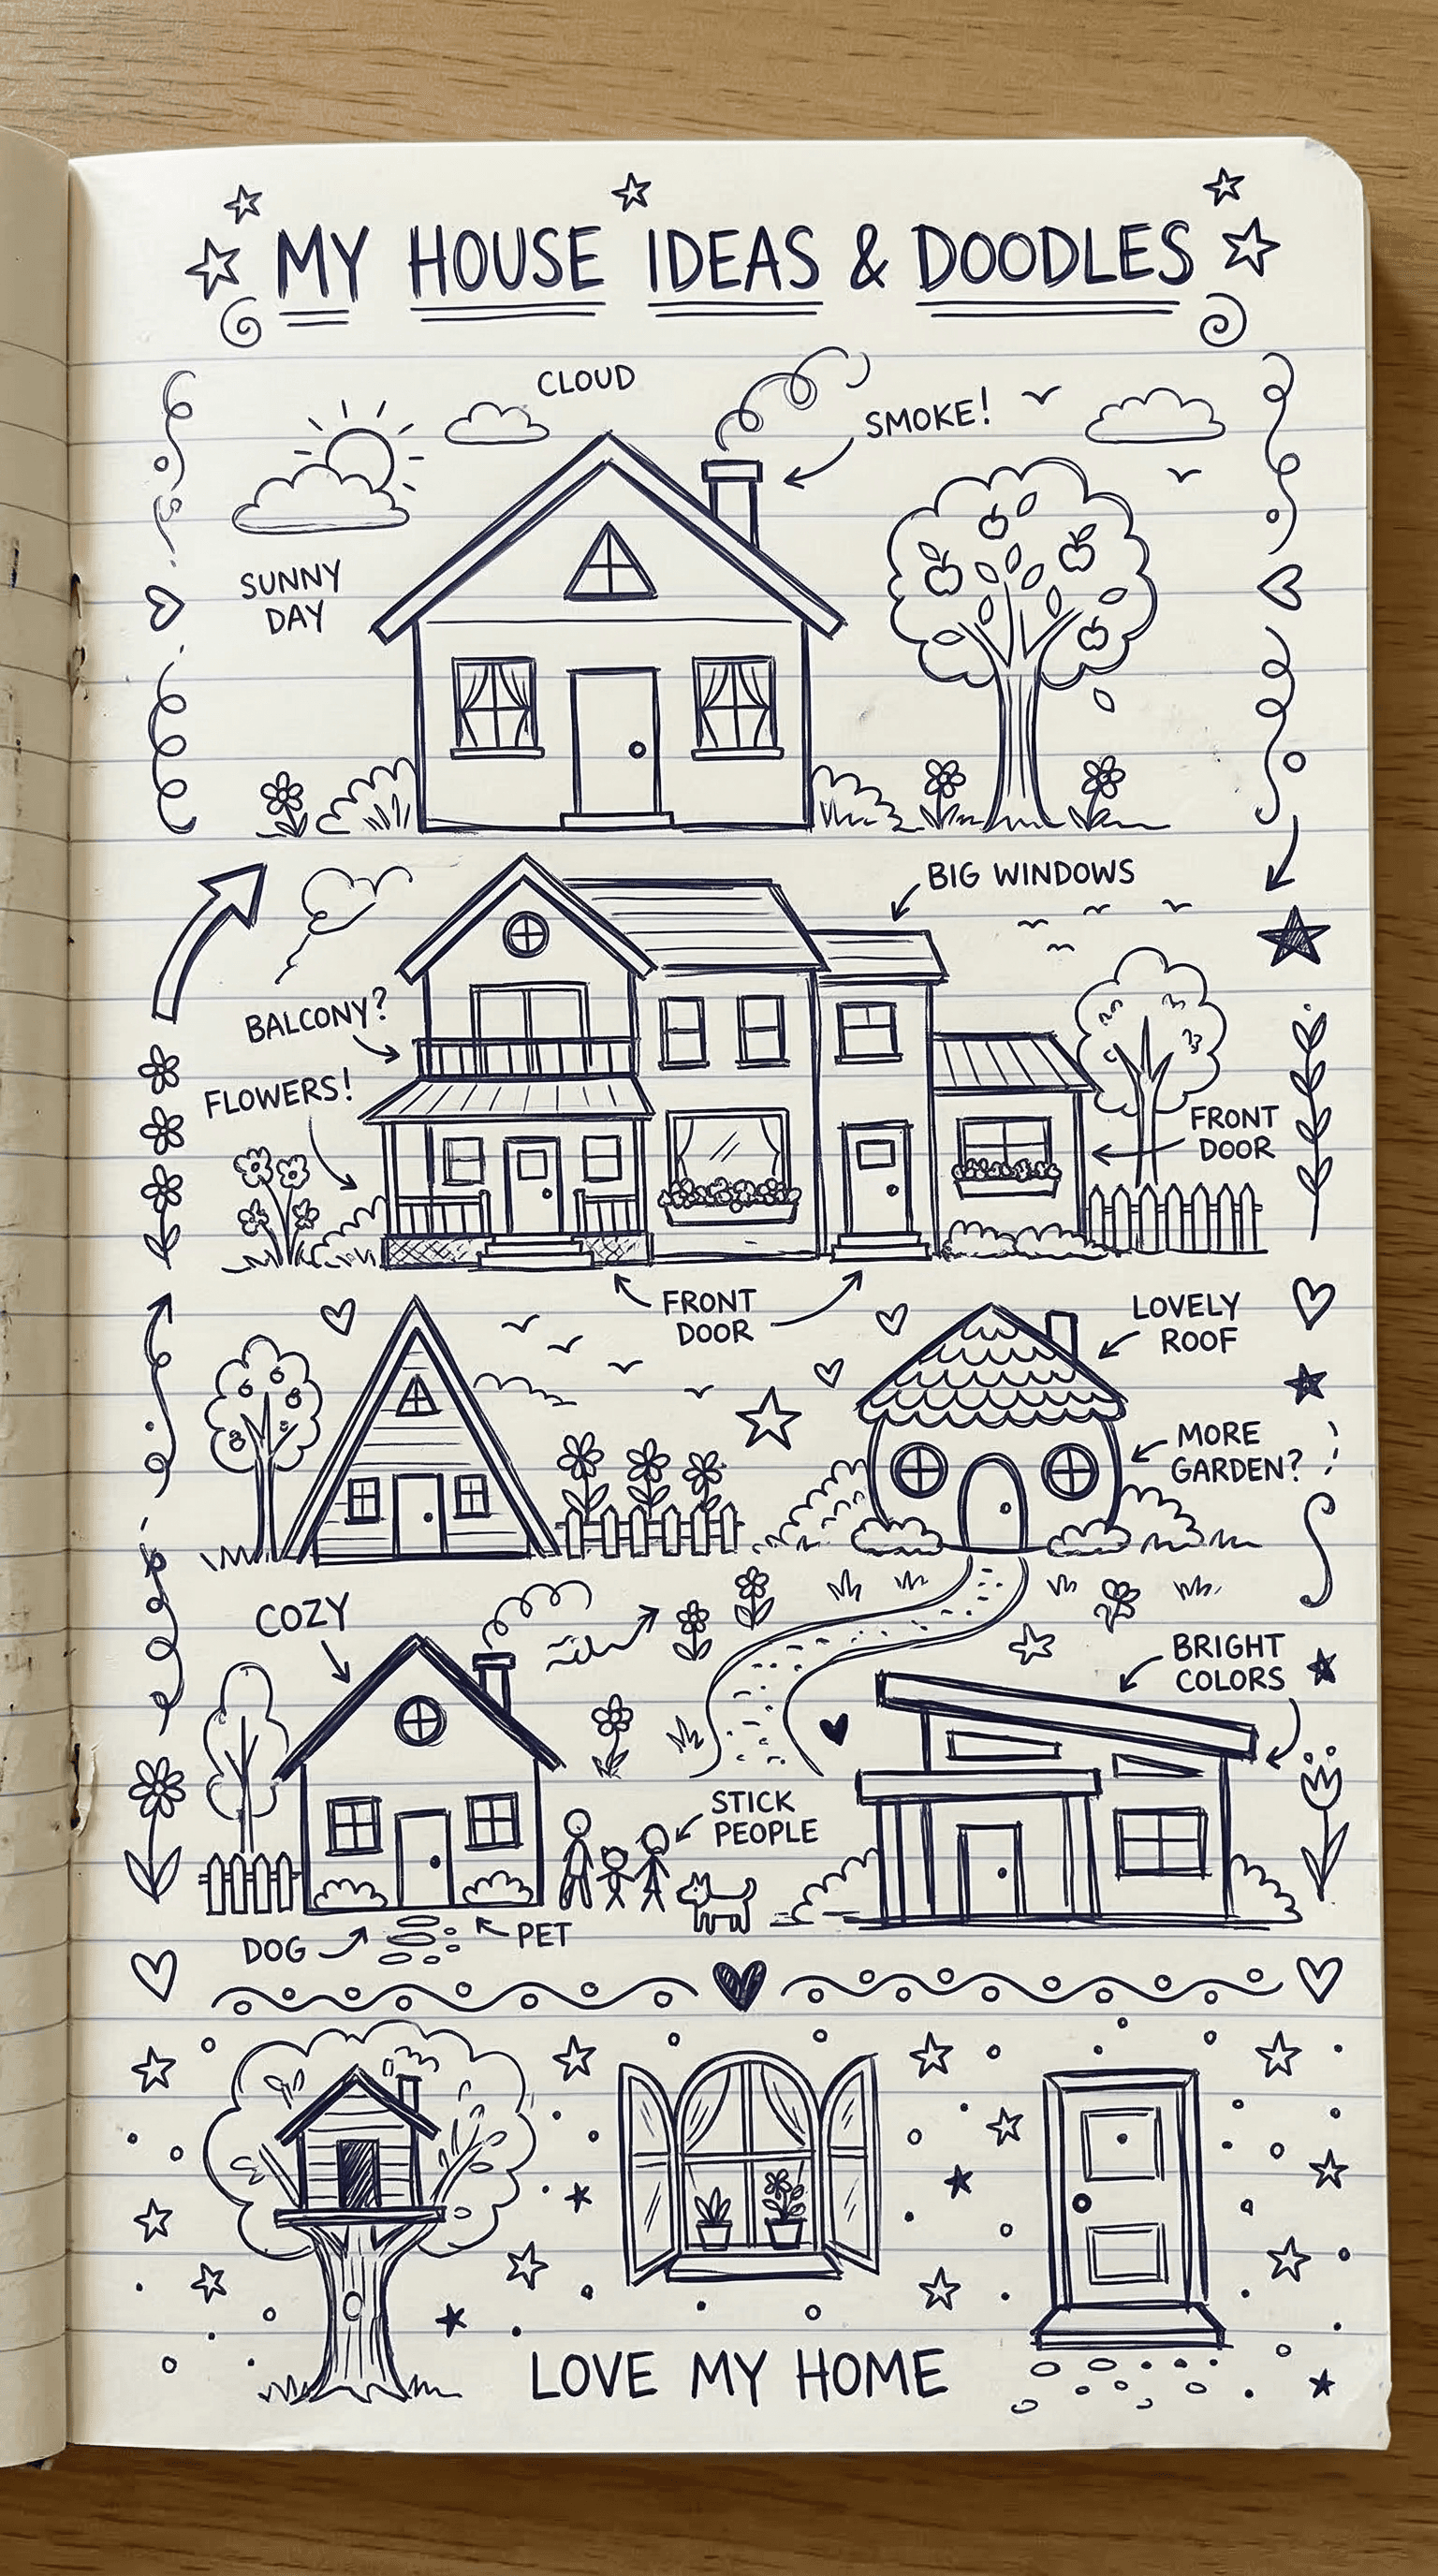 MY HOUSE IDEAS & DOODLES
CLOUD
SMOKE!
SUNNY
DAY
BIG WINDOWS
BALCONY?
FLOWERS!
FRONT
DOOR
FRONT
DOOR
LOVELY
ROOF
MORE
GARDEN?
COZY
BRIGHT
COLORS
STICK
PEOPLE
DOG
PET
LOVE MY HOME